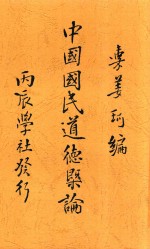 姜琦編
中國國民道德槩論
丙辰學社發行